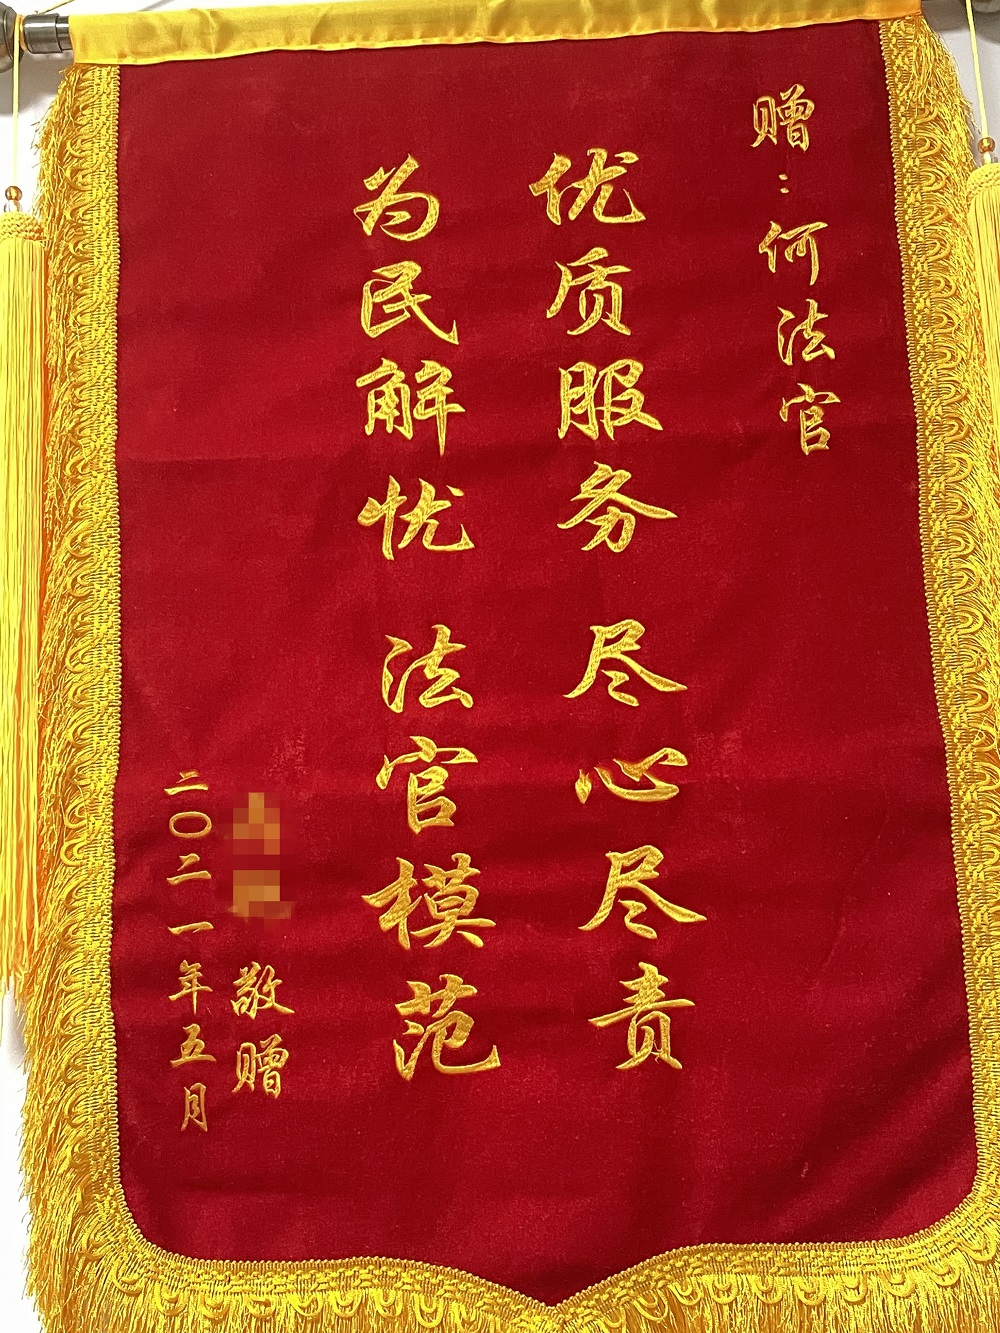 赠：何法官
优质服务 尽心尽责
为民解忧 法官模范
敬赠
二〇二一年五月